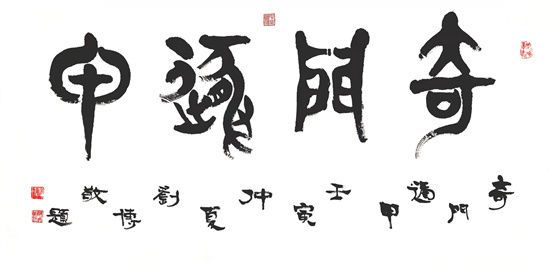 奇門遯甲
奇門遁甲壬寅仲夏劉博敬題